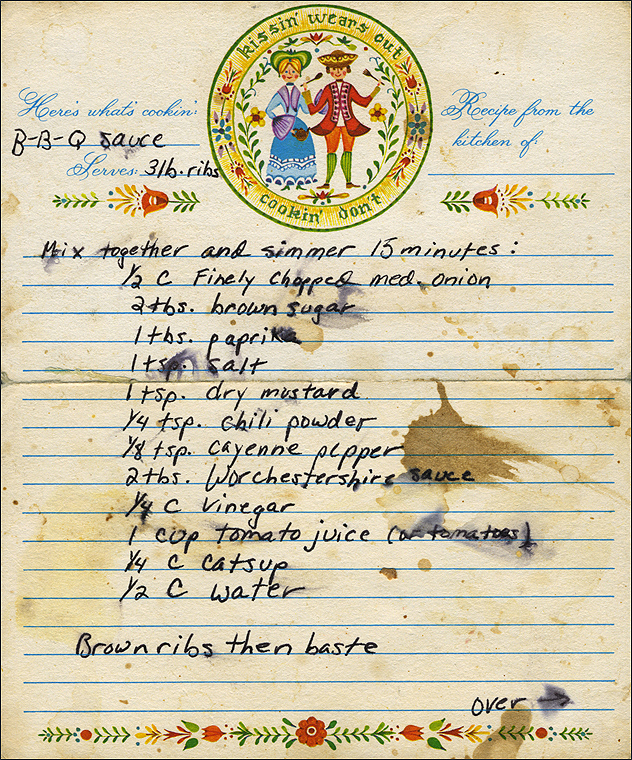 kissin' wears out
cookin' don't
Here's what's cookin':
B-B-Q sauce
Serves: 3lb. ribs
Recipe from the
kitchen of:
Mix together and simmer 15 minutes:
1/2 C Finely Chopped med. onion
2 tbs. brown sugar
1 tbs. paprika
1 tsp. salt
1 tsp. dry mustard
1/4 tsp. chili powder
1/8 tsp. cayenne pepper
2 tbs. Worchestershire sauce
1/4 C Vinegar
1 cup tomato juice (or tomatoes)
1/4 C Catsup
1/2 C water
Brown ribs then baste
over →